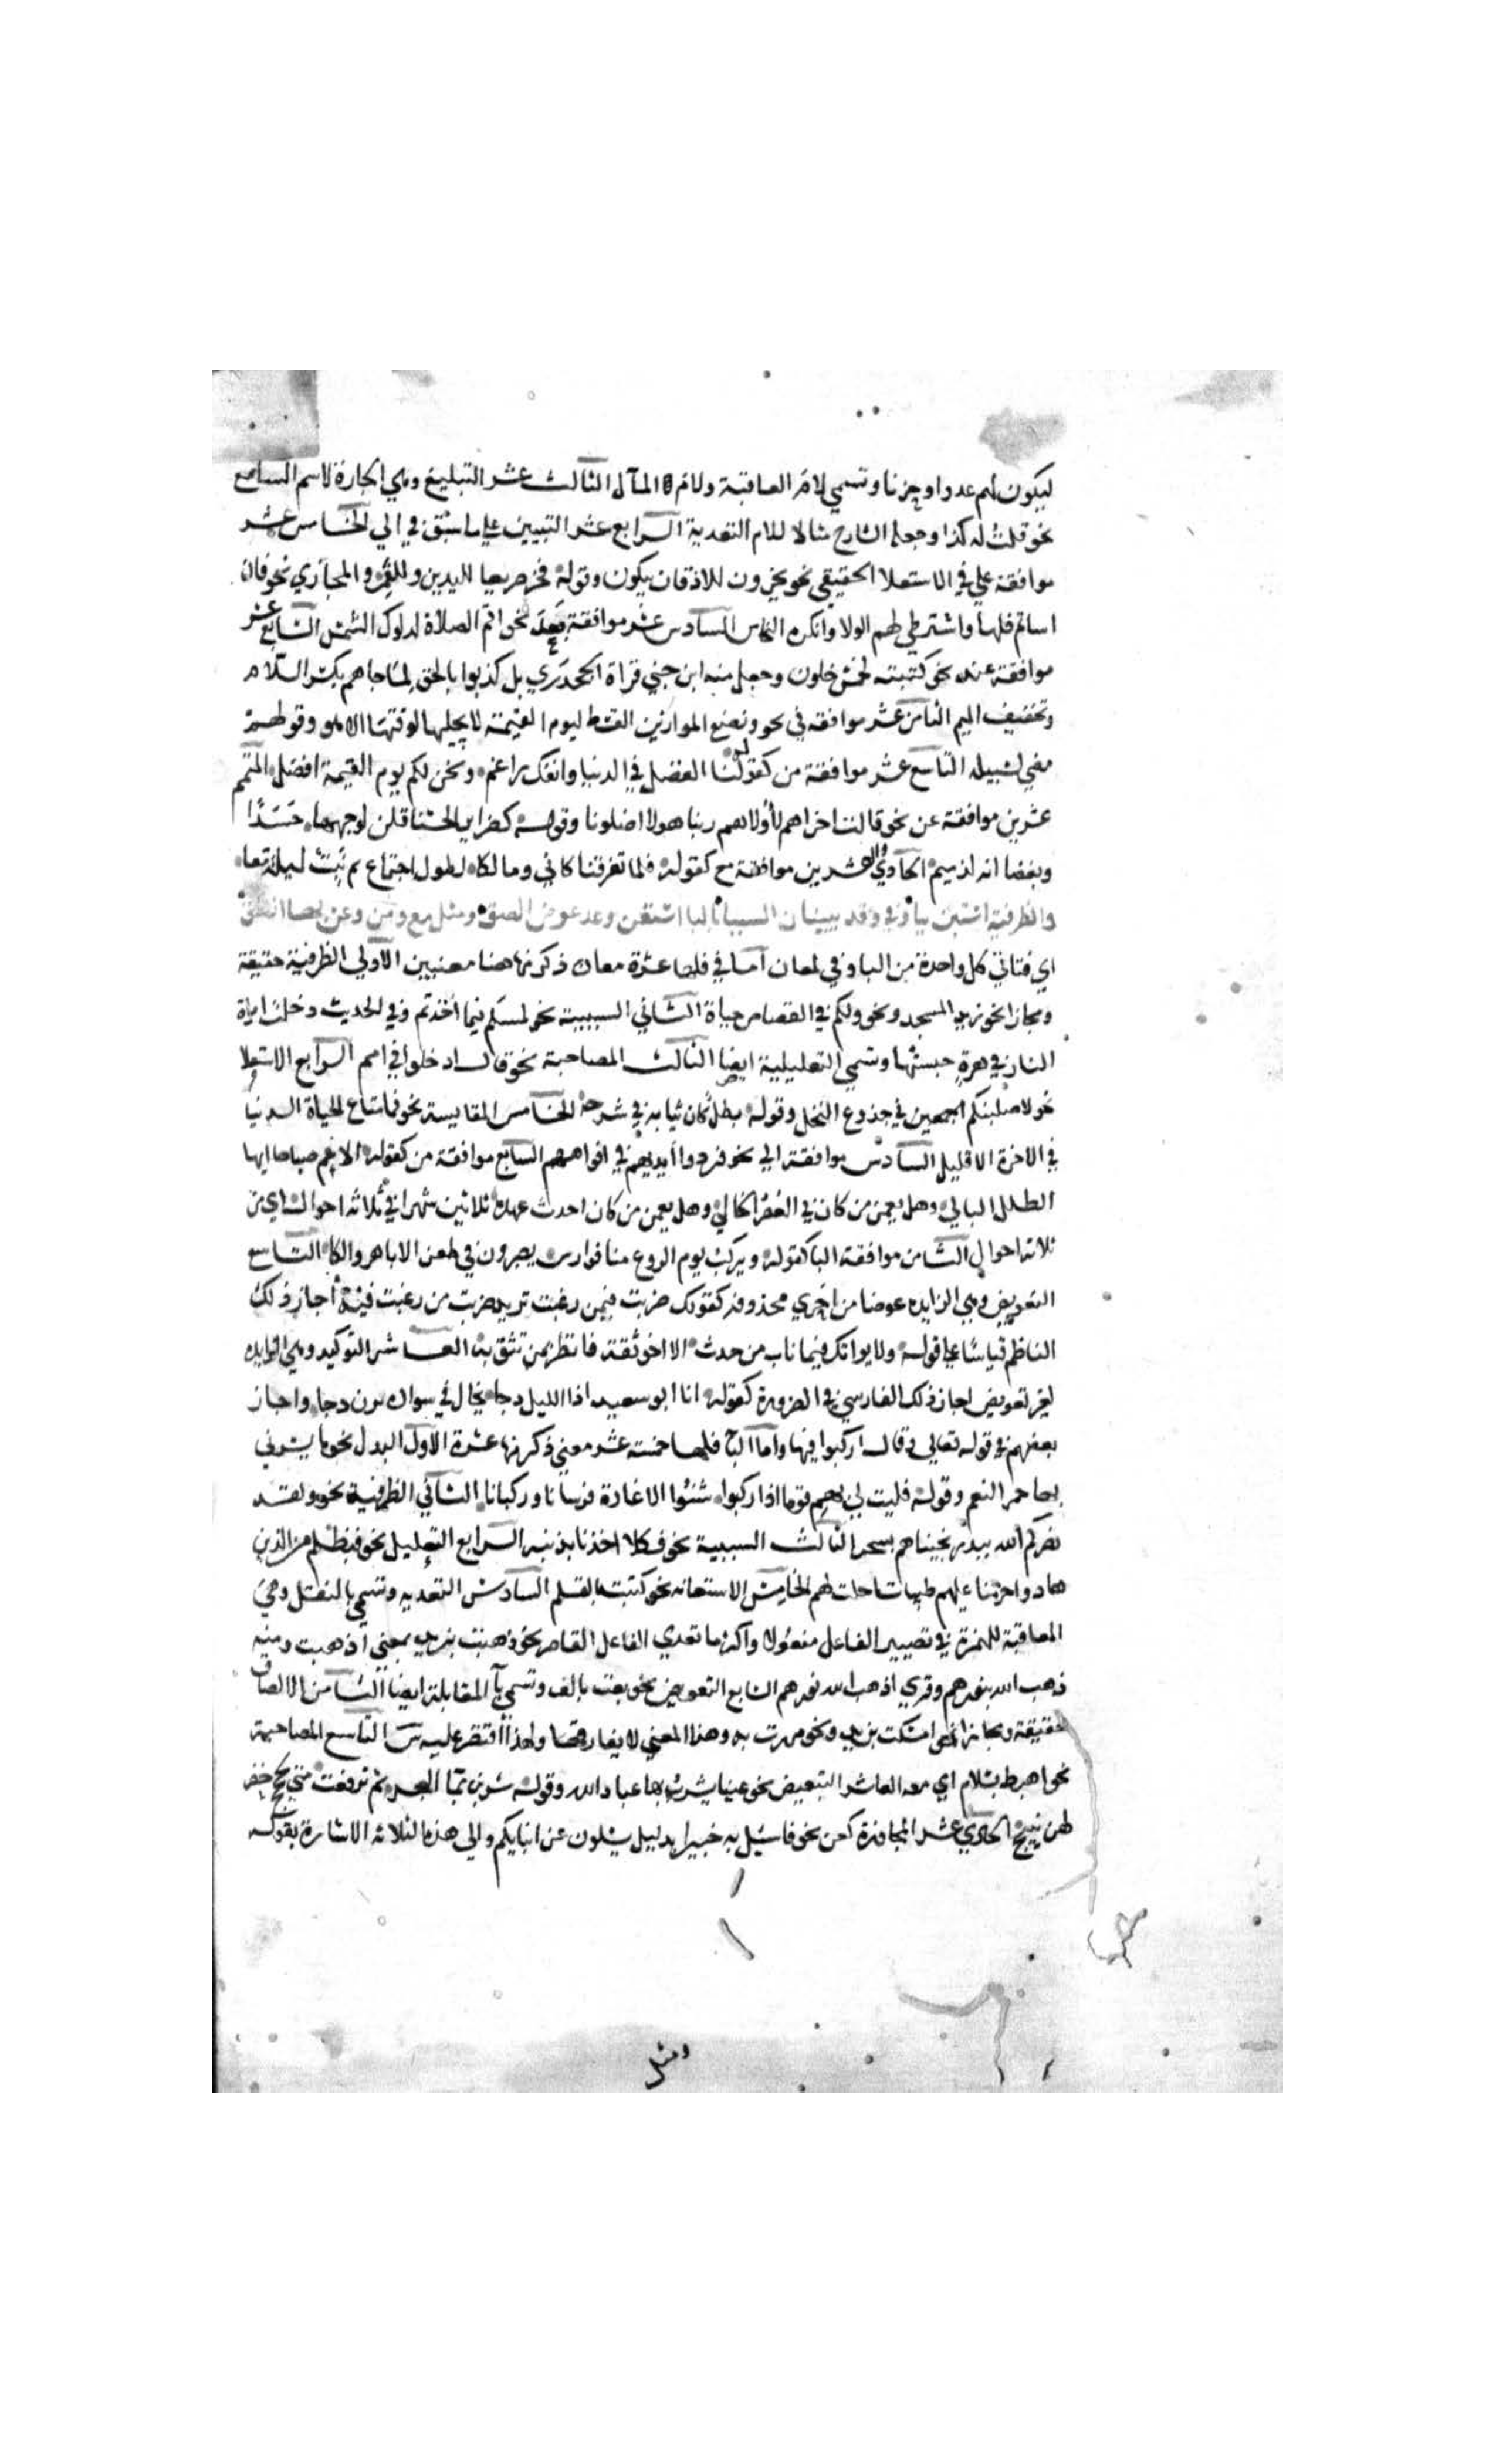 ليكون لهم عدوا وحزنا وتسمي لام العاقبة ولام المآل الثالث عشر التبليغ وهي الجارة لاسم السامع
نحو قلت له كذا وجعله الشارح مثالا للام التعدية الرابع عشر التبيين علي ما سبق في الي الخامس عشر
موافقة علي في الاستعلا الحقيقي نحو يخرون للاذقان يبكون وقوله فخر صريعا لليدين وللفم والمجازي نحو فان
اساتم فلها واشترطي لهم الولا وانكره النحاس السادس عشر موافقة بعد نحو اقم الصلاة لدلوك الشمس السابع عشر
موافقة عند نحو كتبته لخمس خلون وجعل منه ابن جني قراة الجحدري بل كذبوا بالحق لما جاهم بكسر اللام
وتخفيف الميم الثامن عشر موافقة في نحو ونضع الموازين القسط ليوم القيمة لا يجليها لوقتها الا هو وقولهم
مضي لسبيله التاسع عشر موافقة من كقوله لنا الفضل في الدنيا وانفك راغم ونحن لكم يوم القيمة افضل المتمم
عشرين موافقة عن نحو قالت اخراهم لاولاهم ربنا هولا اضلونا وقوله كضراير الحسنا قلن لوجهها حسدا
وبغضا انه لذميم الحادي والعشرين موافقة مع كقوله فلما تفرقنا كاني ومالكا لطول اجتماع لم نبت ليلة معا
والظرفية استبن ببا وفي وقد يبينان السببا بالبا استعن وعد عوض الصق ومثل مع ومن وعن بها انطق
اي فتاتي كل واحدة من البا وفي لمعان اما في فلها عشرة معان ذكر منها هنا معنيين الاولي الظرفية حقيقة
ومجازا نحو زيد في المسجد ونحو ولكم في القصاص حياة الثاني السببية نحو لمسكم فيما اخذتم وفي الحديث دخلت امراة
النار في هرة حبستها وتسمي التعليلية ايضا الثالث المصاحبة نحو قال ادخلوا في امم الرابع الاستعلا
نحو لاصلبنكم اجمعين في جذوع النخل وقوله بطل كان ثيابه في سرحة الخامس المقايسة نحو فما متاع الحياة الدنيا
في الاخرة الا قليل السادس موافقة الي نحو فردوا ايديهم في افواههم السابع موافقة من كقوله الا عم صباحا ايها
الطلل البالي وهل يعمن من كان في العصر الخالي وهل يعمن من كان احدث عهده ثلاثين شهرا في ثلاثة احوال اي من
ثلاثة احوال الثامن موافقة البا كقوله ويركب يوم الروع منا فوارس يصرون في طعن الاباهر والكلا التاسع
التعويض وهي الزايده عوضا من اخري محذوفة كقولك ضربت فيمن رغبت تريد ضربت من رغبت فيه اجاز ذلك
الناظم قياسا علي قوله ولا يواتك فيما ناب من حدث الا اخو ثقة فانظر بمن تثق به العاشر التوكيد وهي الزايده
لغير تعويض اجاز ذلك الفارسي في الضرورة كقوله انا ابو سعيد اذا الليل دجا يخال في سواده يرندجا واجاز
بعضهم في قوله تعالي وقال اركبوا فيها واما البا فلها خمسة عشر معني ذكر منها عشرة الاول البدل نحو ما يسرني
بها حمر النعم وقوله فليت لي بهم قوما اذا ركبوا شنوا الاغارة فرسانا وركبانا الثاني الظرفية نحو ولقد
نصركم الله ببدر نجيناهم بسحر الثالث السببية نحو فكلا اخذنا بذنبه الرابع التعليل نحو فبظلم من الذين
هادوا حرمنا عليهم طيبات احلت لهم الخامس الاستعانه نحو كتبت بالقلم السادس التعديه وتسمي با النقل وهي
المعاقبة للهمزة في تصيير الفاعل مفعولا واكثر ما تعدي الفاعل القاصر نحو ذهبت بزيد بمعني اذهبت ومنه
ذهب الله بنورهم وقري اذهب الله نورهم السابع التعويض نحو بعت بالف وتسمي با المقابلة ايضا الثامن الالصاق
حقيقة ومجازا نحو امسكت بزيد ونحو مررت به وهذا المعني لا يفارقها ولهذا اقتصر عليه س التاسع المصاحبة
نحو اهبط بسلام اي معه العاشر التبعيض نحو عينا يشرب بها عباد الله وقوله شربن بما البحر ثم ترفعت متي لجج خضر
لهن نييج الحادي عشر المجاوزة كعن نحو فاسيل به خبيرا بدليل يسلون عن انبايكم والي هذه الثلاثة الاشارة بقوله
ومثل